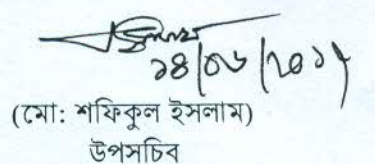 ১৪/০৬/২০১৭
(মো: শফিকুল ইসলাম)
উপসচিব